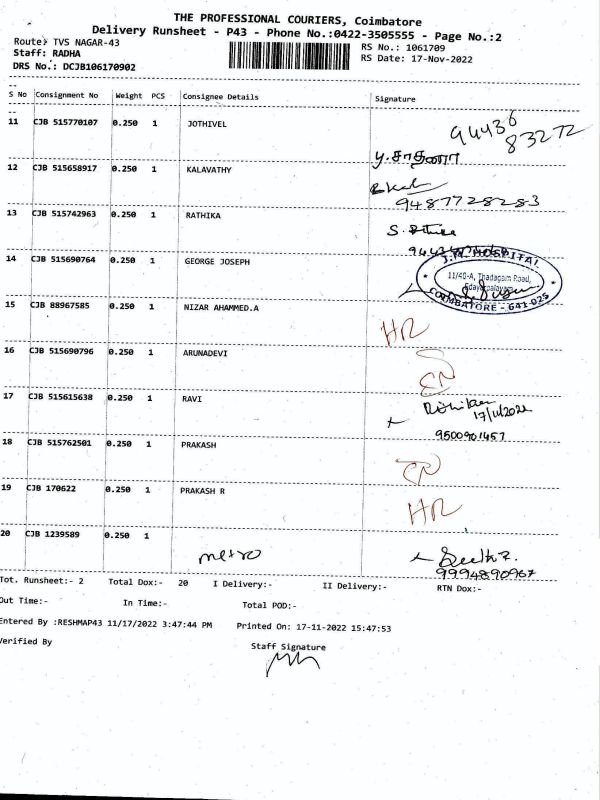 THE PROFESSIONAL COURIERS, Coimbatore
Delivery Runsheet - P43 - Phone No.:0422-3505555 - Page No.:2
Route: TVS NAGAR-43
RS No.: 1061709
Staff: RADHA
RS Date: 17-Nov-2022
DRS No.: DCJB106170902
S No Consignment No Weight PCS Consignee Details Signature
11 CJB 515770107 0.250 1 JOTHIVEL 94436 83272
12 CJB 515658917 0.250 1 KALAVATHY
9487728283
13 CJB 515742963 0.250 1 RATHIKA
14 CJB 515690764 0.250 1 GEORGE JOSEPH
J.M. HOSPITAL
11/40-A, Thadagam Road,
Edayarpalayam
COIMBATORE - 641 025
15 CJB 88967585 0.250 1 NIZAR AHAMMED.A
HR
16 CJB 515690796 0.250 1 ARUNADEVI
17 CJB 515615638 0.250 1 RAVI
17/11/2022
9500901457
18 CJB 515762501 0.250 1 PRAKASH
19 CJB 170622 0.250 1 PRAKASH R
HR
20 CJB 1239589 0.250 1
metro
9994890967
Tot. Runsheet:- 2 Total Dox:- 20 I Delivery:- II Delivery:- RTN Dox:-
Out Time:- In Time:- Total POD:-
Entered By :RESHMAP43 11/17/2022 3:47:44 PM Printed On: 17-11-2022 15:47:53
Verified By Staff Signature